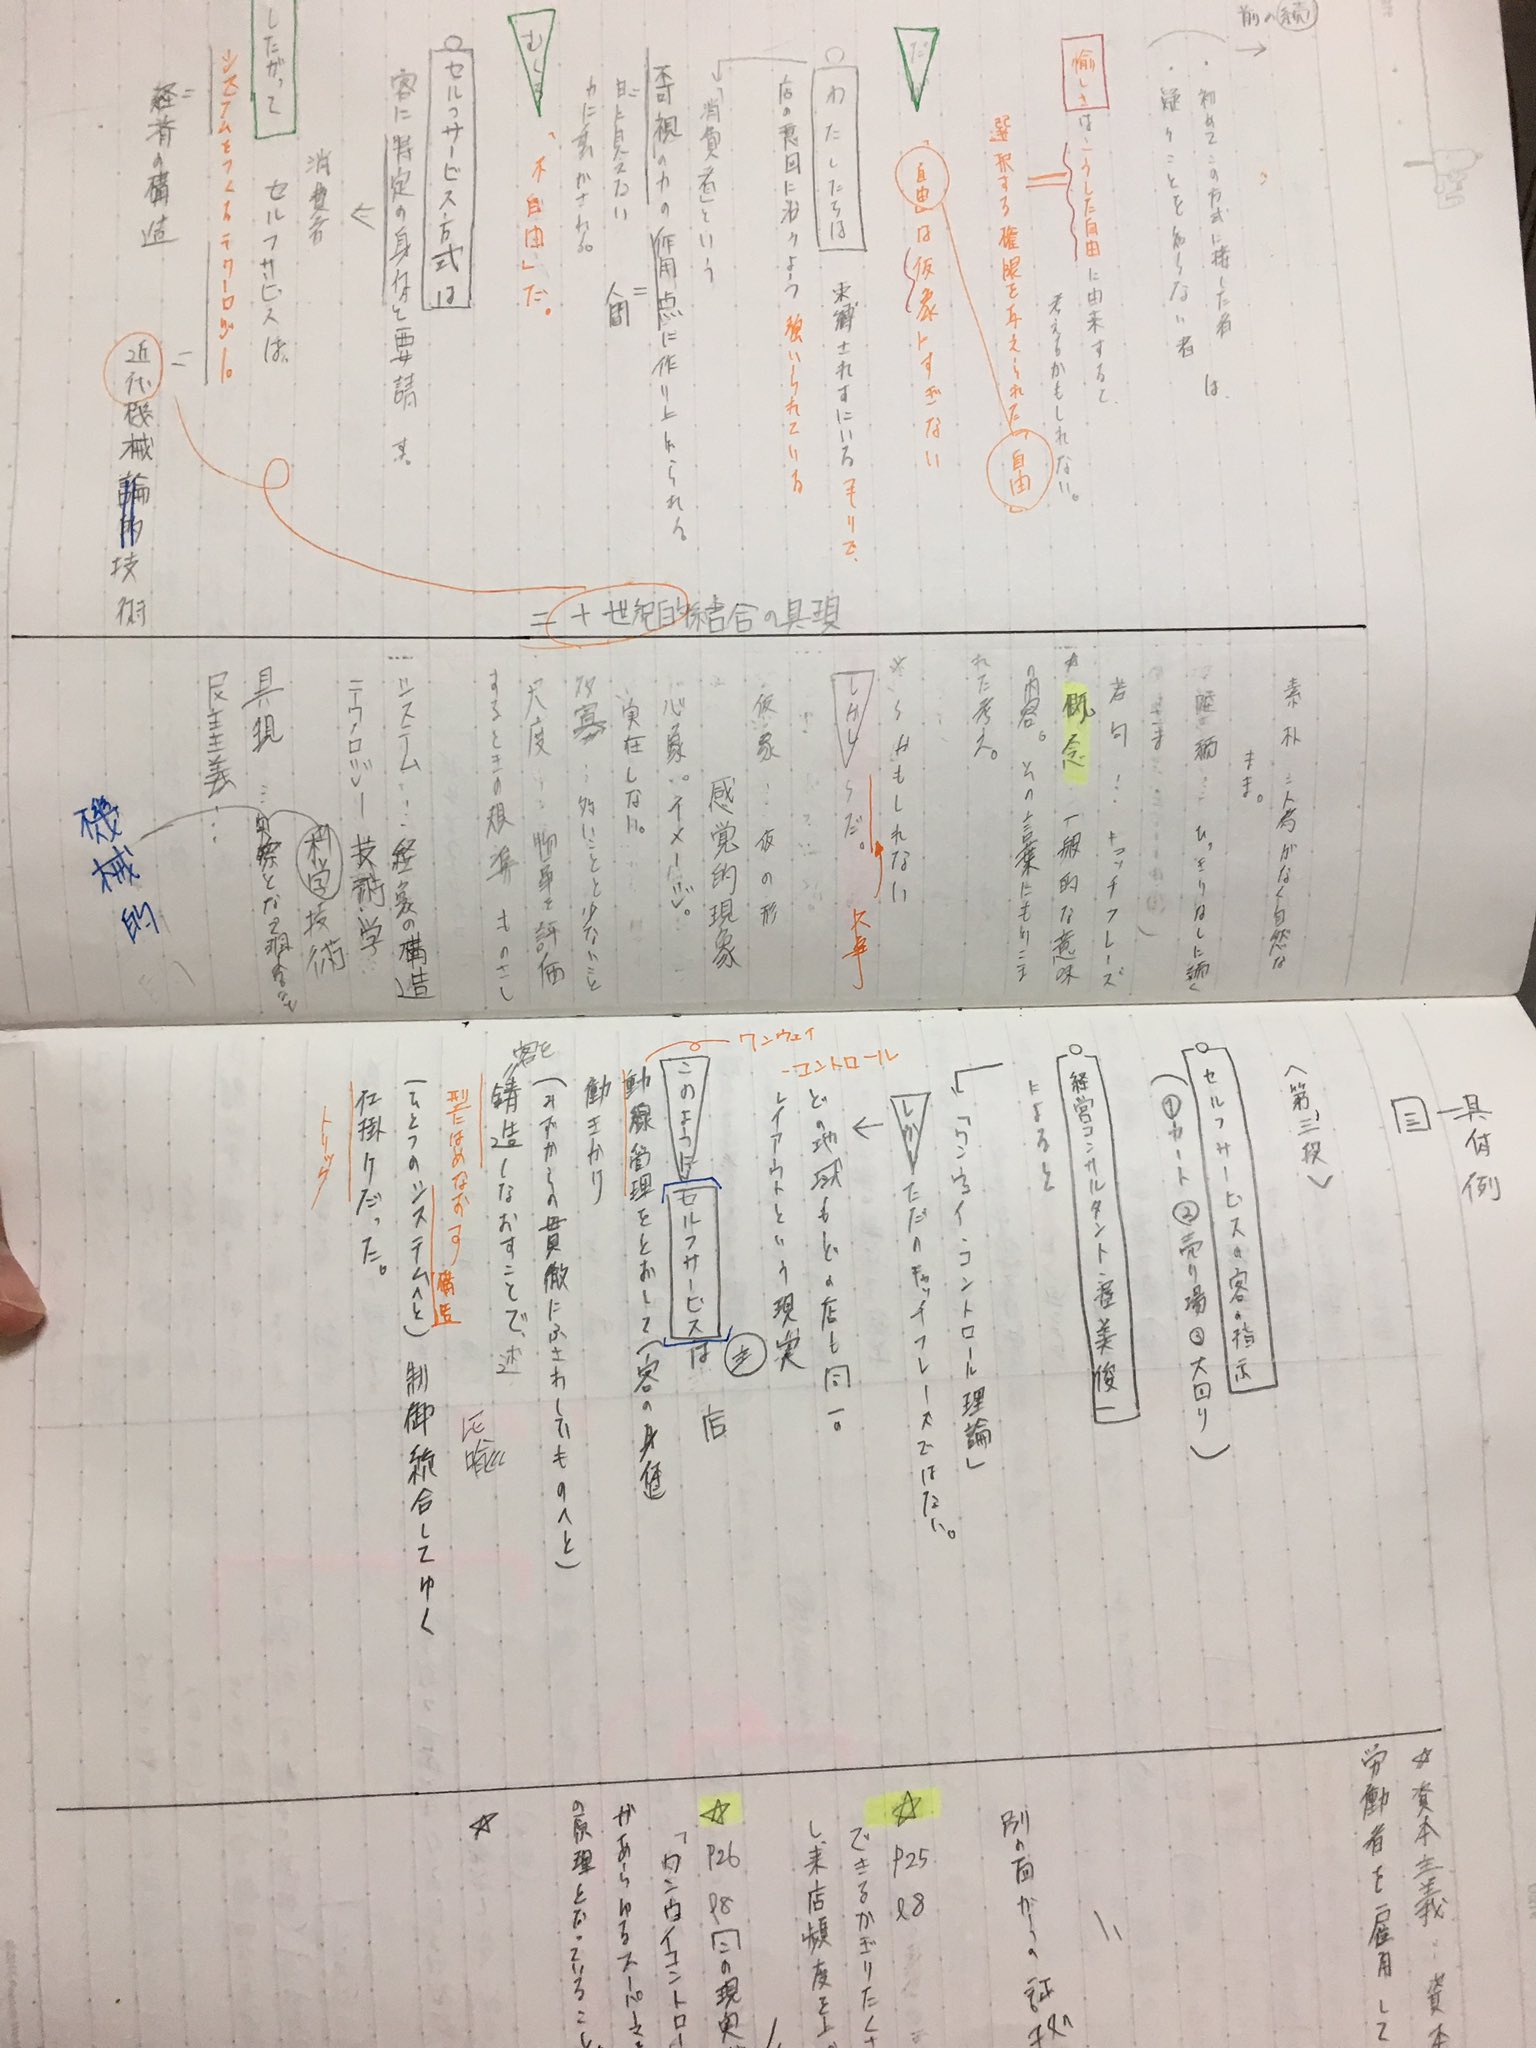 前の続
・初めてこの方式に接した者は、
・疑うことを知らない者
愉しさはこうした自由に由来すると、
考えるかもしれない。
選択する権限を与えられた「自由」
だ
「自由」は仮象にすぎない
わたしたちは 束縛されずにいるつもりで、
店の意図に沿うよう強いられている
「消費者」という
不可視の力の作用点に作り上げられる
目に見えない 人間
力に動かされる。
むしろ
「不自由」だ。
セルフサービス方式は
客に特定の身体を要請する。
消費者
したがって セルフサービスは、
システムをつくるテクノロジー。
経済の構造
近代機械論的技術
=十世紀的結合の具現
素朴…人為がなく自然な
まま。
若句… キャッチフレーズ
☆概念 一般的な意味
内容。その言葉にもりこま
れた考え。
※〜かもしれない
しかし〜だ。
大事
仮象…仮の形
感覚的現象
心象。イメージ。
実在しない。
多寡…多いことと少ないこと
尺度…物事を評価
するときの規準 ものさし
システム…経営の構造
テクノロジー 技術・学
科学技術
具現…実際となって現れる
民主主義…
機械的
三 具体例
〈第三段〉
セルフサービスの客の指示
(①カート②売り場③大回り)
経営コンサルタント・渥美俊一
によると
「ワンウェイ・コントロール理論」
しかし ただのキャッチフレーズではない。
どの地域もどの店も同一の
レイアウトという現実
ワンウェイ
・コントロール
このように セルフサービスは 店
動線管理をとおして(客の身体
動きかり
(みずからの貫徹にふさわしいものへと)
客を
鋳造しなおすことで、
型にはめなおす 構造
比喩
(ひとつのシステムへと)制御統合してゆく
仕掛けだった。
トリック
☆資本主義…資本
労働者を雇用して
別の面からの証拠
☆P25 l8
できるかぎりたくさ
し、来店頻度を上
☆P26 l8 この現実
「ワンウェイコントロー
があらゆるスーパーマ
の原理となっていること
☆